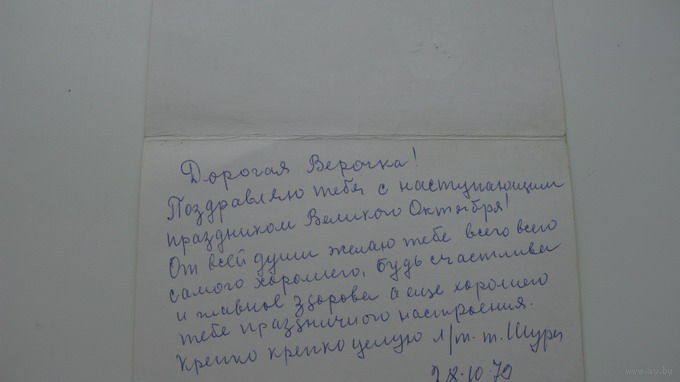 Дорогая Верочка!
Поздравляю тебя с наступающим
праздником Великого Октября!
От всей души желаю тебе всего всего
самого хорошего, будь счастлива
и главное здорова а еще хорошего
тебе праздничного настроения.
Крепко крепко целую т. Шура
28.10.79
www.ay.by